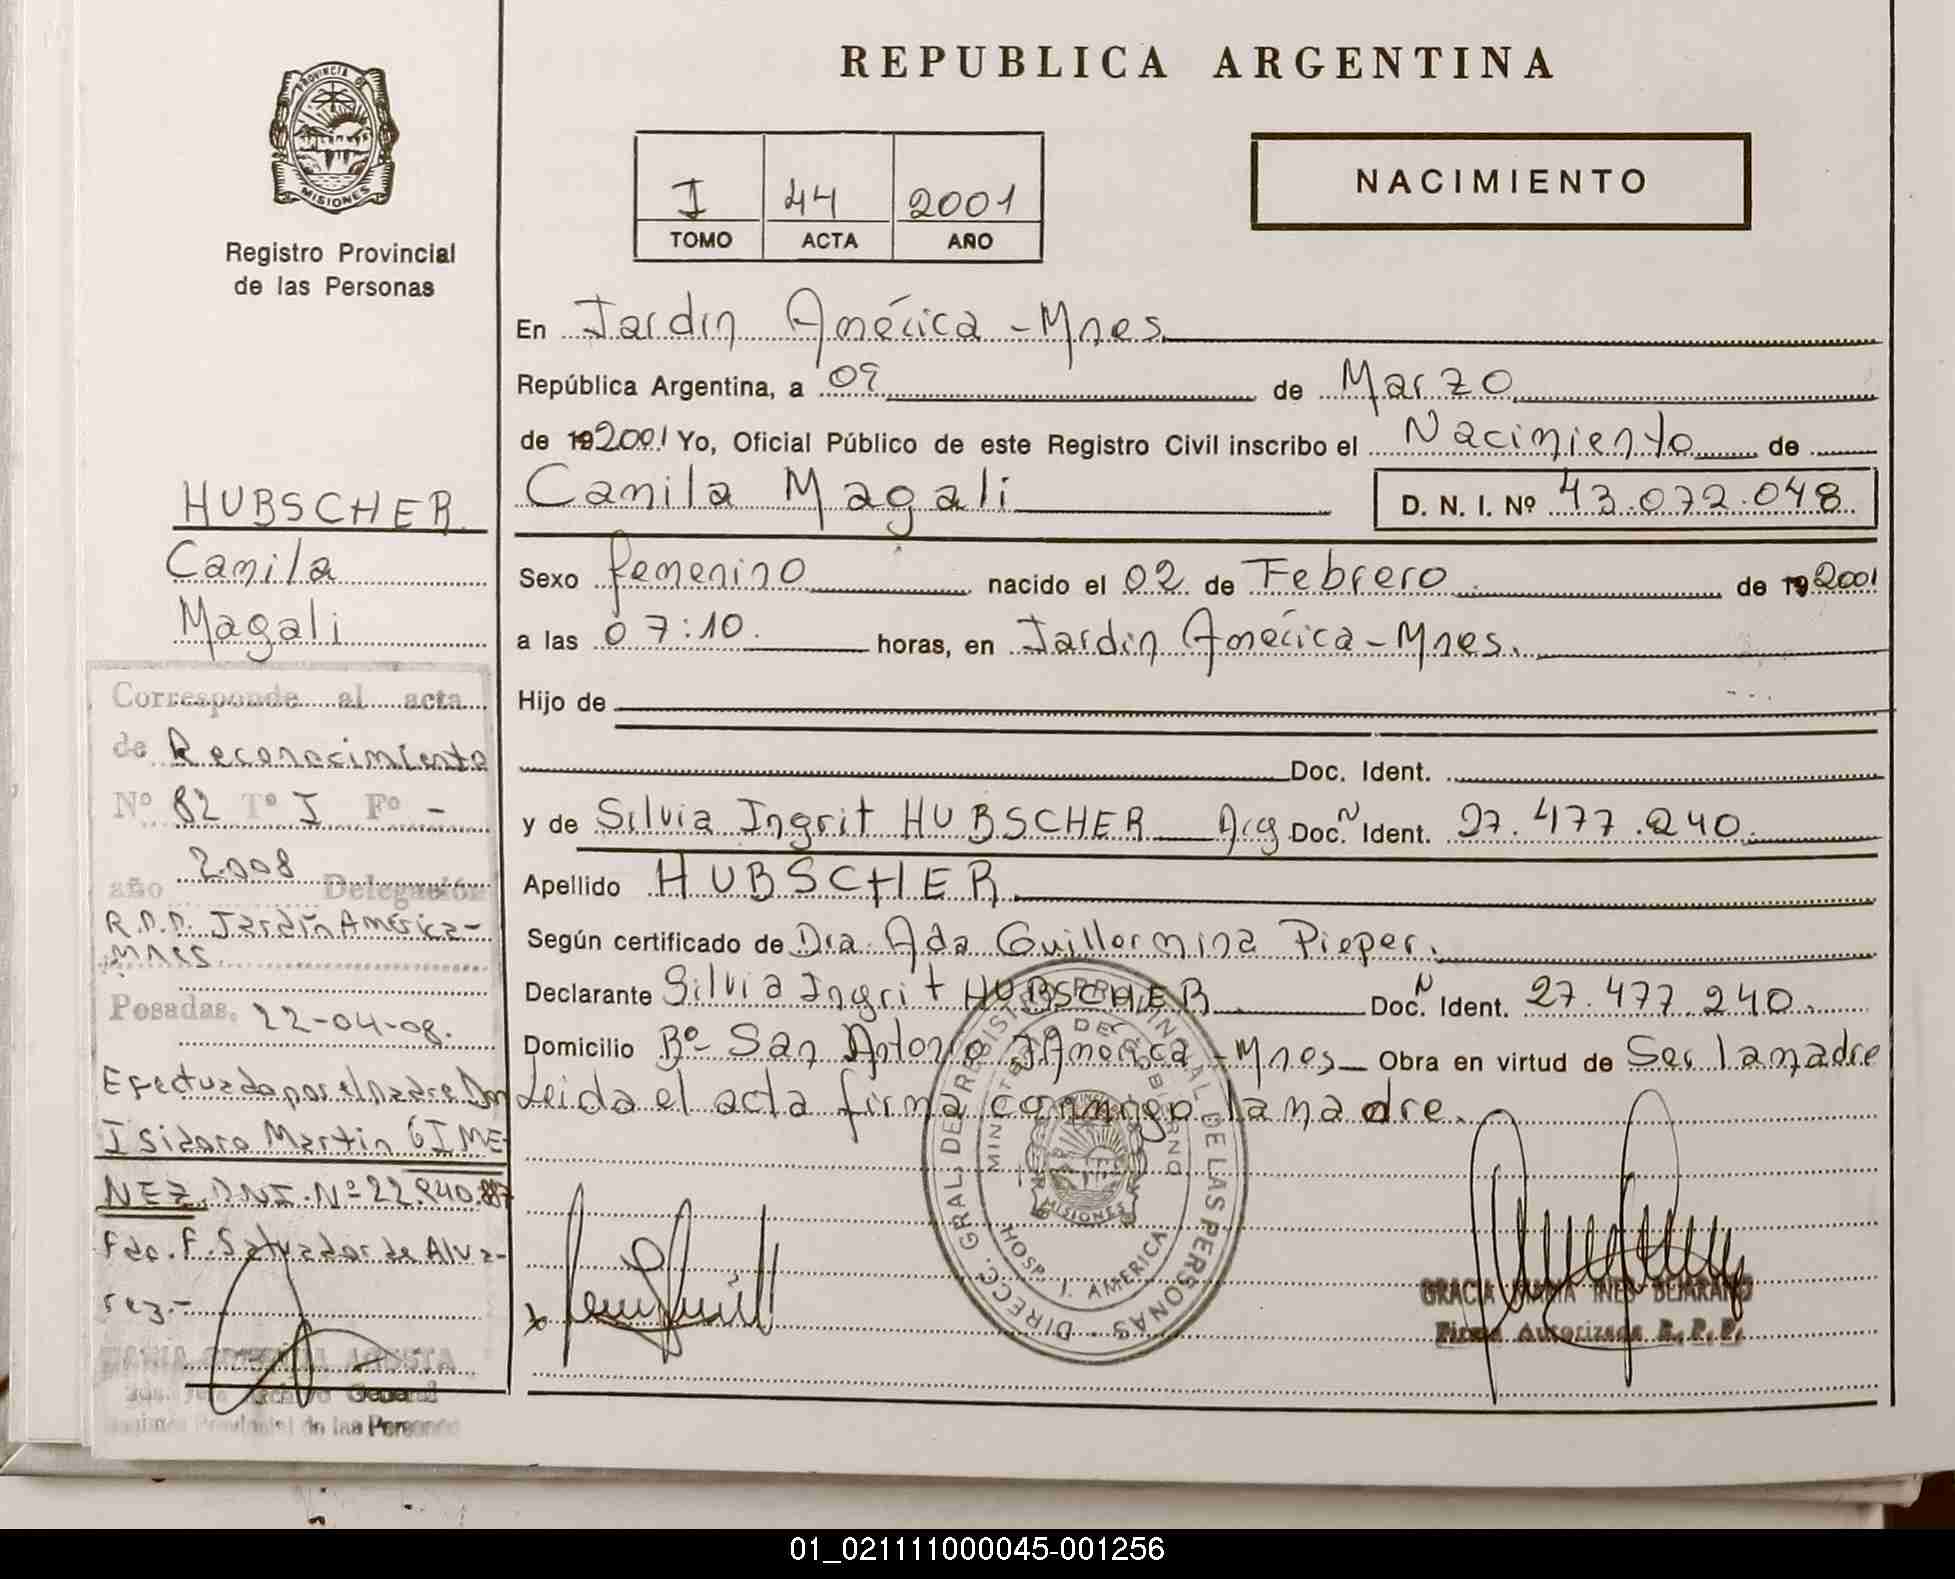 REPUBLICA ARGENTINA
PROVINCIA DE
MISIONES
Registro Provincial
de las Personas
I 44 2001
TOMO ACTA AÑO
NACIMIENTO
En Jardín América - Mnes.
República Argentina, a 09 de Marzo
de 192001 Yo, Oficial Público de este Registro Civil inscribo el Nacimiento de
Camila Magali D. N. I. Nº 43.072.048
Sexo femenino nacido el 02 de Febrero de 192001
a las 07:10. horas, en Jardín América - Mnes.
Hijo de
Doc. Ident.
y de Silvia Ingrit HUBSCHER Arg Doc. N Ident. 27.477.240.
Apellido HUBSCHER
Según certificado de Dra. Ada Guillermina Pieper.
Declarante Silvia Ingrit HUBSCHER Doc. N Ident. 27.477.240.
Domicilio Bº San Antonio J. América - Mnes Obra en virtud de Ser la madre
Leida el acta firma conmigo la madre.
DIRECC. GRAL. DE REGISTRO PROVINCIAL DE LAS PERSONAS
MINISTRO DE GOBIERNO
MISIONES
HOSP. J. AMERICA
GRACIA MARIA INES BEJARANO
Firma Autorizada R. P. P.
HUBSCHER
Camila
Magali
Corresponde al acta
de Reconocimiento
Nº 82 Tº I Fº -
año 2.008 Delegación
R.P.P. Jardín América-
Mnes.
Posadas, 22-04-08.
Efectuado por el Padre Dn
Isidoro Martin GIME-
NEZ. DNI. Nº 22.940.887
Fdo. F. Salvador de Alva-
rez.-
General
Provincial de las Personas
01_021111000045-001256